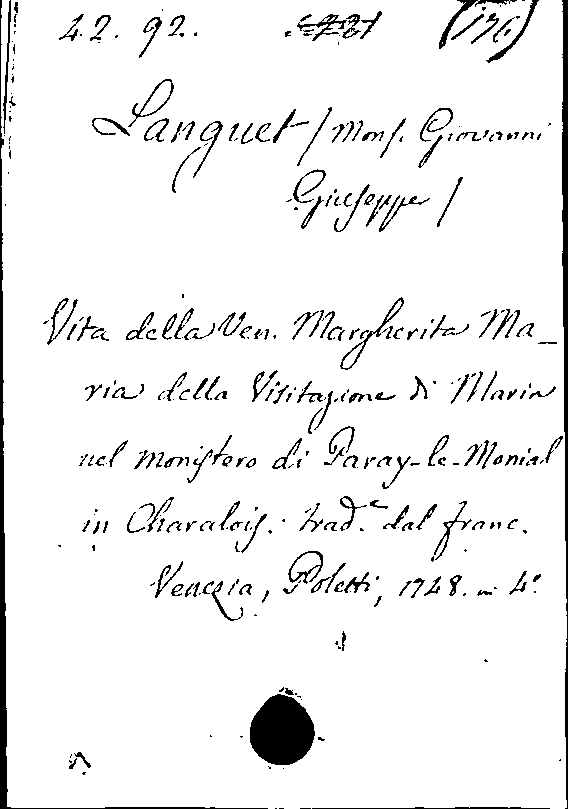 42. 92. (136)
Languet / Mons. Giovanni
Giuseppe /
Vita della Ven. Margherita Ma-
ria della Visitazione di Maria
nel monistero di Paray-le-Monial
in Charalois. trad.e dal franc.
Venezia, Poletti, 1748. in 4°.